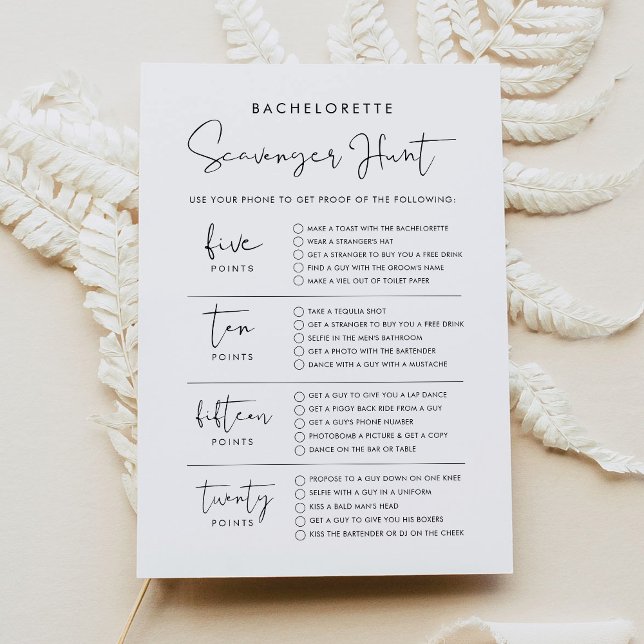 BACHELORETTE
Scavenger Hunt
USE YOUR PHONE TO GET PROOF OF THE FOLLOWING:
five
POINTS
MAKE A TOAST WITH THE BACHELORETTE
WEAR A STRANGER'S HAT
GET A STRANGER TO BUY YOU A FREE DRINK
FIND A GUY WITH THE GROOM'S NAME
MAKE A VIEL OUT OF TOILET PAPER
ten
POINTS
TAKE A TEQULIA SHOT
GET A STRANGER TO BUY YOU A FREE DRINK
SELFIE IN THE MEN'S BATHROOM
GET A PHOTO WITH THE BARTENDER
DANCE WITH A WITH A MUSTACHE
fifteen
POINTS
GET A GUY TO GIVE YOU A LAP DANCE
GET A PIGGY BACK RIDE FROM A GUY
GET A GUY'S PHONE NUMBER
PHOTOBOMB A PICTURE & GET A COPY
DANCE ON THE BAR OR TABLE
twenty
POINTS
PROPOSE TO A GUY DOWN ON ONE KNEE
SELFIE WITH A GUY IN A UNIFORM
KISS A BALD MAN'S HEAD
GET A GUY TO GIVE YOU HIS BOXERS
KISS THE BARTENDER OR DJ ON THE CHEEK